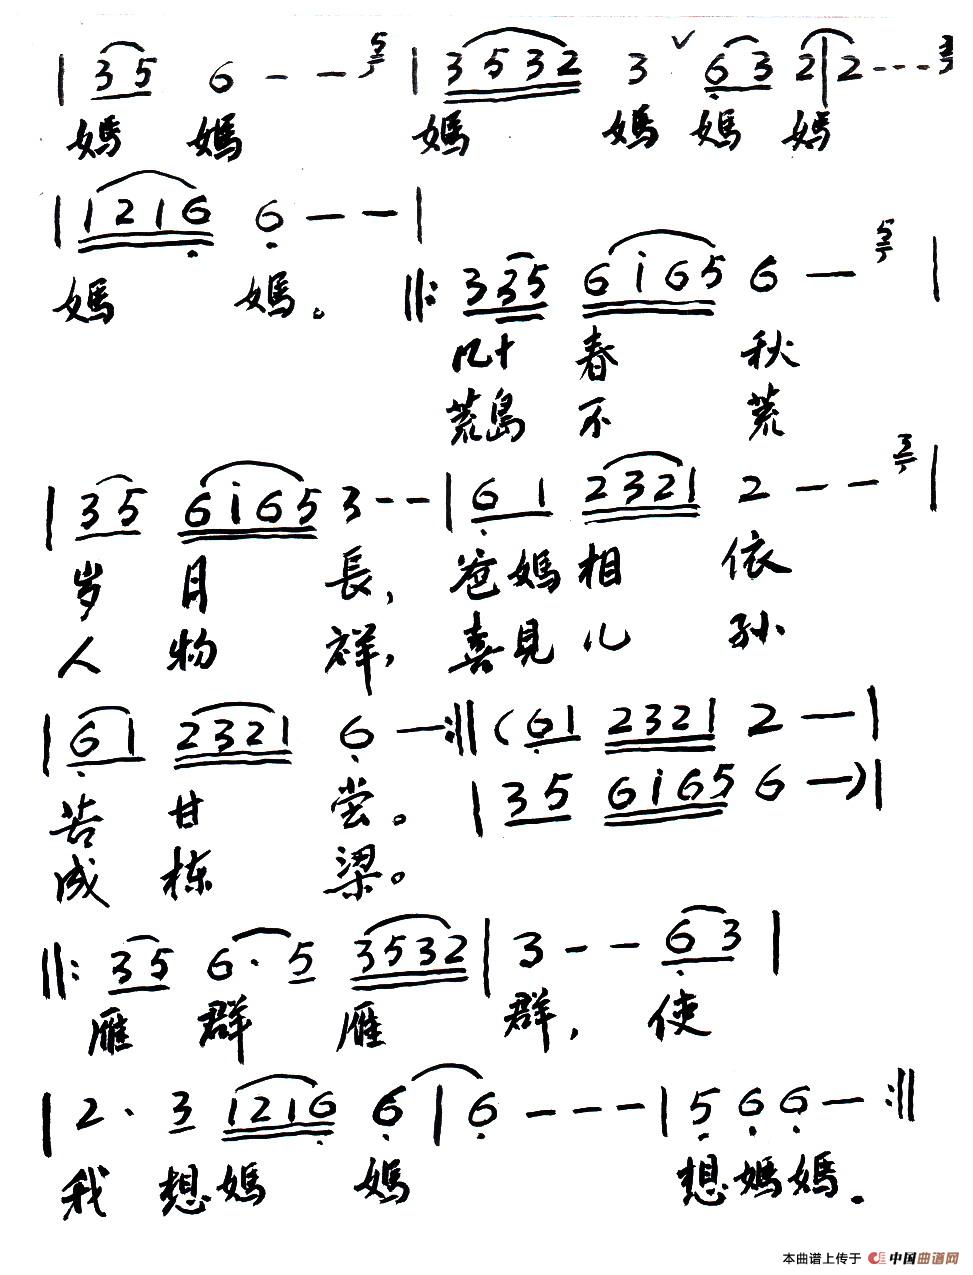 | 35 6 - - 5 | 3532 3 ˅ 63 2 | 2 - - - 3
媽 媽 媽 媽 媽 媽
| 1216 6 - - |
媽 媽。
‖: 335 6i65 6 - 5 |
几十 春 秋
荒島 不 荒
| 35 6i65 3 - - | 61 2321 2 - - 3 |
岁 月 長, 爸媽相 依
人 物 祥, 喜見儿 孙
| 61 2321 6 - :‖ (61 2321 2 - |
苦 甘 尝。
| 35 6i65 6 - )|
成 栋 梁。
‖: 35 6· 5 3532 | 3 - - 63 |
雁 群 雁 群, 使
| 2· 3 1216 6 | 6 - - - | 5 6 6 - :‖
我 想媽 媽 想媽媽.
本曲谱上传于 中国曲谱网